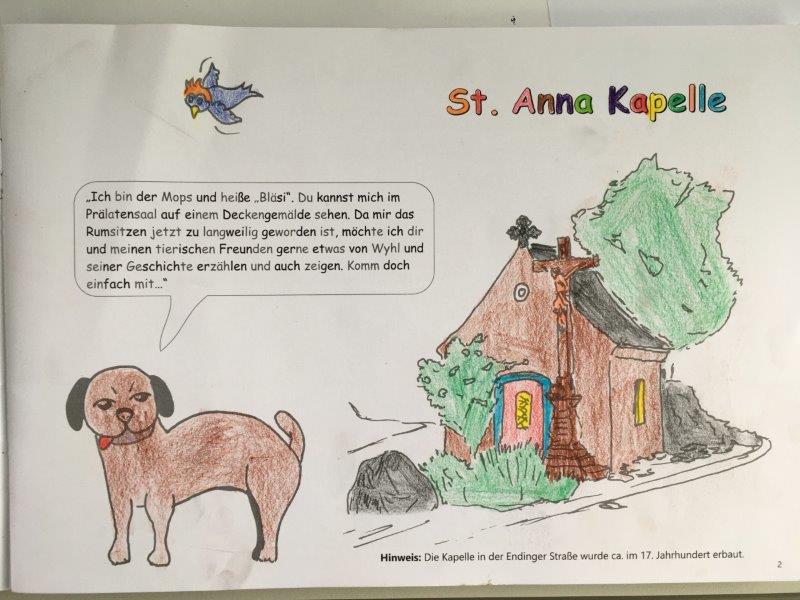 St. Anna Kapelle
„Ich bin der Mops und heiße „Bläsi“. Du kannst mich im
Prälatensaal auf einem Deckengemälde sehen. Da mir das
Rumsitzen jetzt zu langweilig geworden ist, möchte ich dir
und meinen tierischen Freunden gerne etwas von Wyhl und
seiner Geschichte erzählen und auch zeigen. Komm doch
einfach mit...“
Hinweis: Die Kapelle in der Endinger Straße wurde ca. im 17. Jahrhundert erbaut.
2